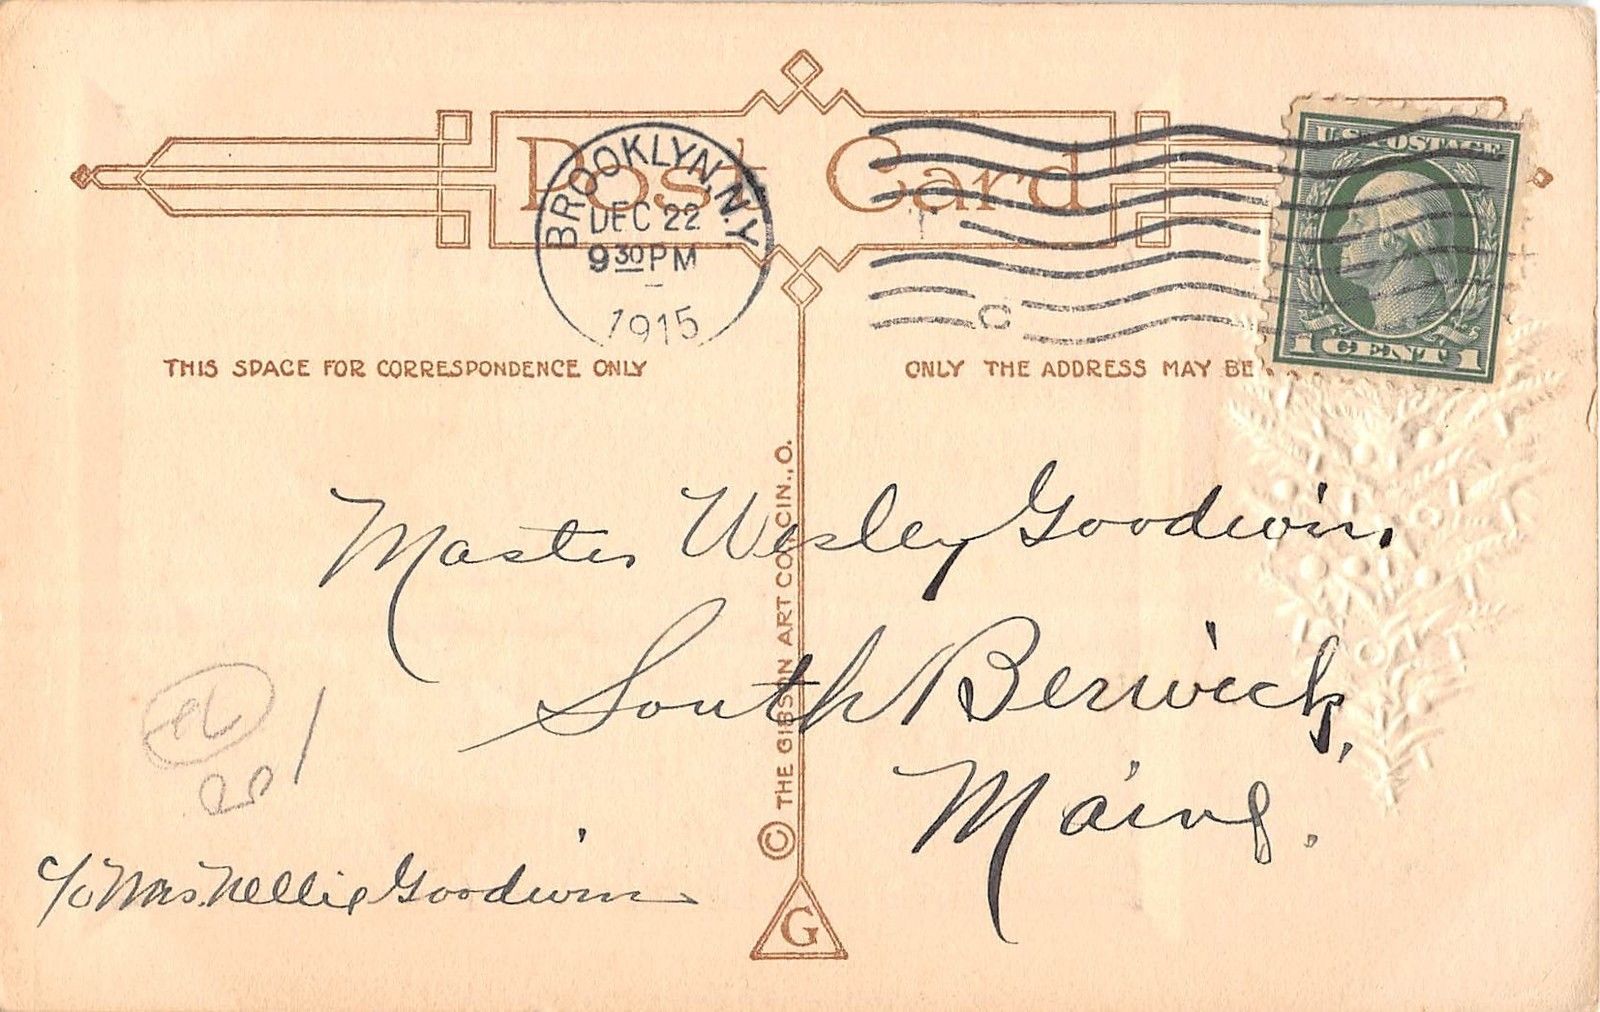 Post Card
BROOKLYN, N.Y.
DEC 22
9 30 PM
1915
C
U.S. POSTAGE
1 CENT 1
THIS SPACE FOR CORRESPONDENCE ONLY
ONLY THE ADDRESS MAY BE
© THE GIBSON ART CO. CIN., O.
Master Wesley Goodwin,
South Berwick,
Maine.
c/o Mrs. Nellie Goodwin
G